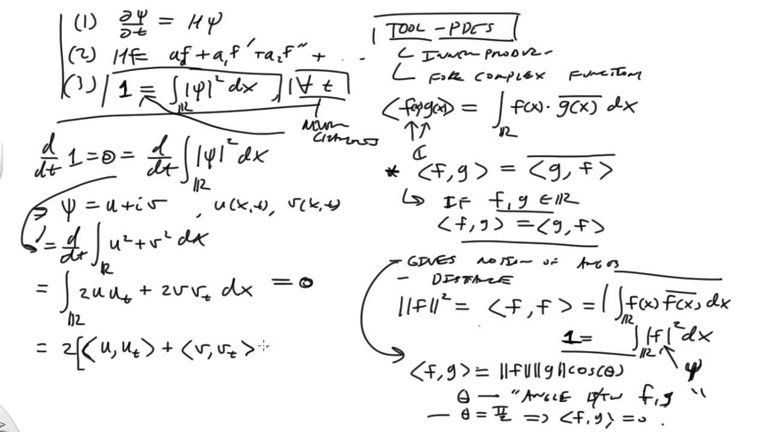 (1) ∂ψ/∂t = Hψ
(2) Hf = af + a₁f′ + a₂f″ + ...
(3) 1 = ∫_ℝ |ψ|² dx, ∀ t
d/dt 1 = 0 = d/dt ∫_ℝ |ψ|² dx
ψ = u + iv , u(x,t), v(x,t)
= d/dt ∫_ℝ u² + v² dx
= ∫_ℝ 2u u_t + 2v v_t dx = 0
= 2[⟨u, u_t⟩ + ⟨v, v_t⟩
TOOL - PDES
INNER PRODUC-
FOR COMPLEX FUNCTION
⟨f(x), g(x)⟩ = ∫_ℝ f(x) · \overline{g(x)} dx
ℂ
* ⟨f, g⟩ = \overline{⟨g, f⟩}
↳ IF f, g ∈ ℝ
⟨f, g⟩ = ⟨g, f⟩
- GIVES NOTION OF ANGLES
- DISTANCE
||f||² = ⟨f, f⟩ = ∫_ℝ f(x) \overline{f(x)} dx
1 = ∫_ℝ |f|² dx
ψ
⟨f, g⟩ = ||f|| ||g|| cos(θ)
θ — "ANGLE BTW f, g"
— θ = π/2 ⇒ ⟨f, g⟩ = 0.